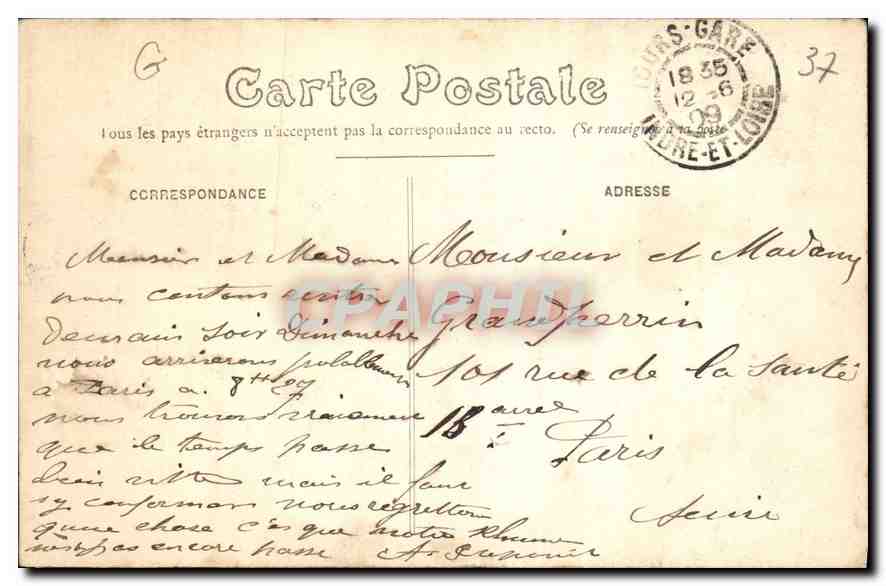 G
37
TOURS-GARE
18 35
12 - 6
09
INDRE-ET-LOIRE
Carte Postale
Tous les pays étrangers n'acceptent pas la correspondance au recto. (Se renseigner à la poste
CORRESPONDANCE
ADRESSE
Monsieur et Madame
nous contons rentrer
demain soir Dimanche
nous arriverons probablement
a Paris a 8H
nous trouvons vraiment
que le temps passe
bien vitte mais il faut
sy conformer nous regrettons
qune chose c'es que notre Rhume
n'est pas encore passe A.
Monsieur et Madame
Grandperrin
101 rue de la Santé
13 arre
Paris
Seine
CPAPHIL